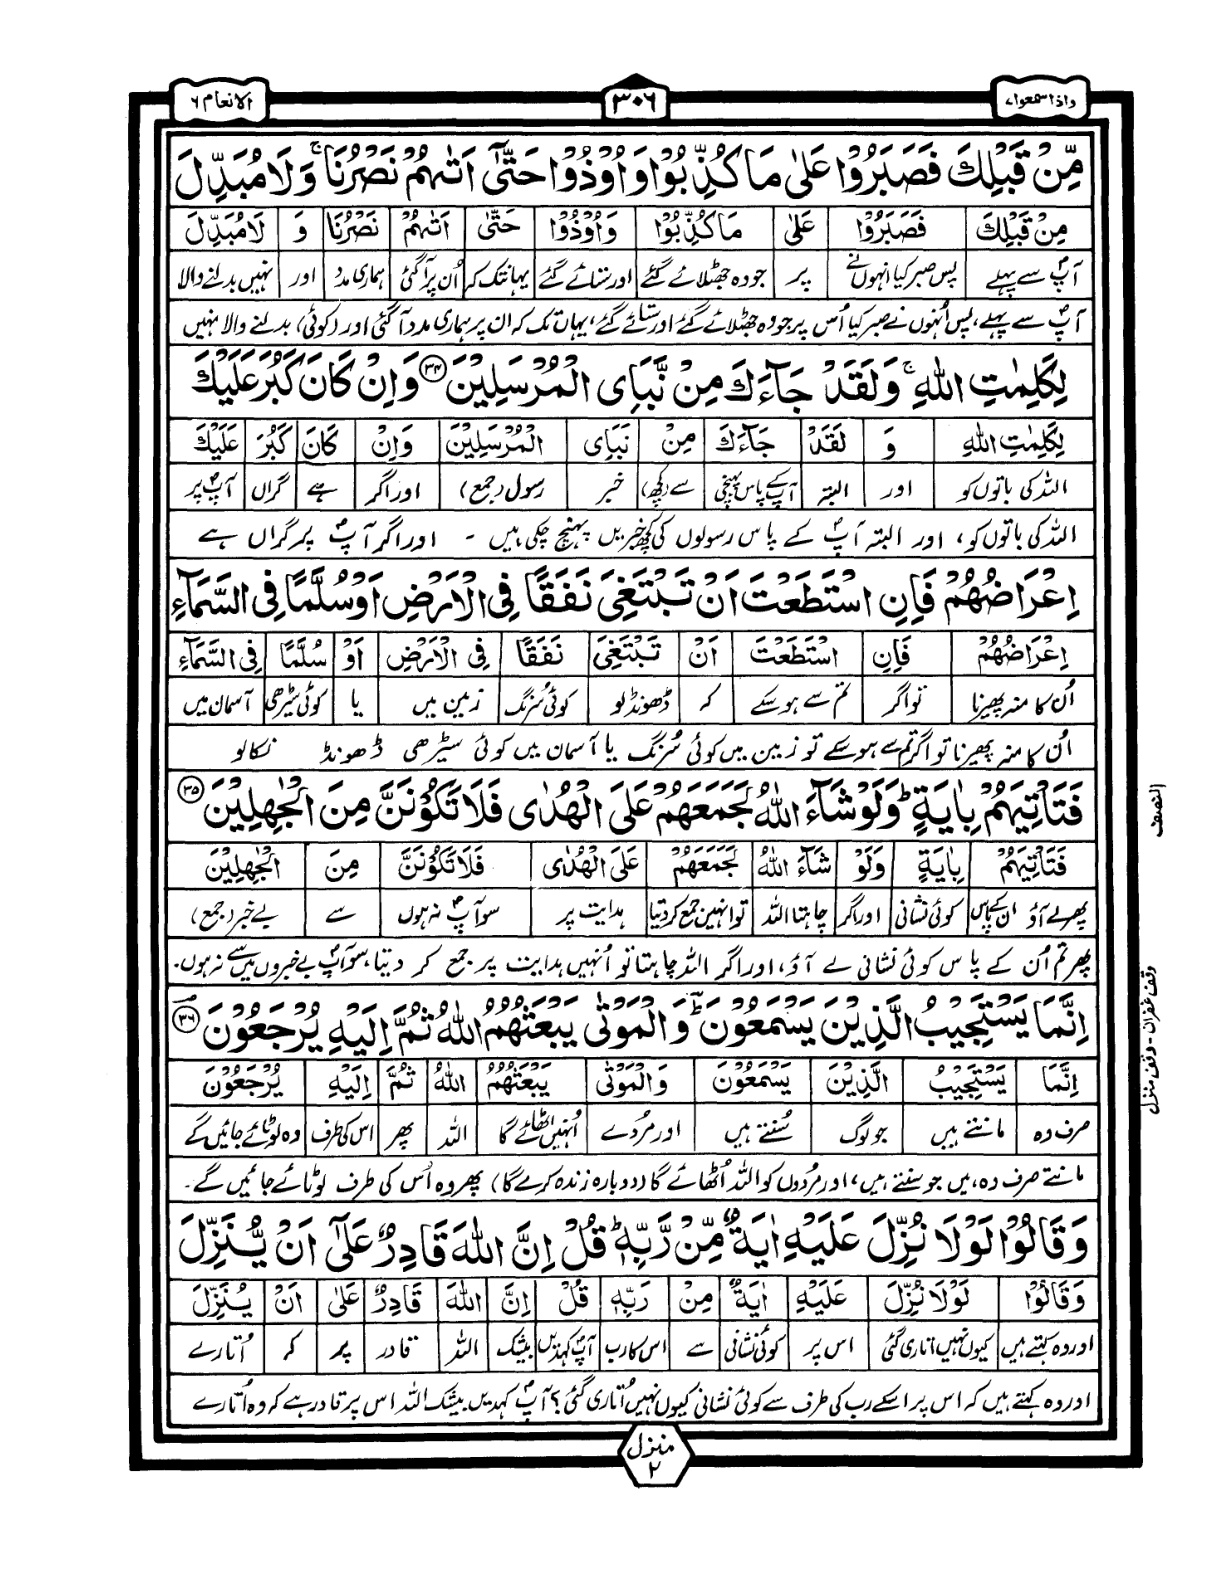 واذا سمعوا ۷
۳۰۶
الانعام ۶
مِّنْ قَبْلِكَ فَصَبَرُوْا عَلٰى مَا كُذِّبُوْا وَاُوْذُوْا حَتّٰٓى اَتٰىهُمْ نَصْرُنَا ۚ وَلَا مُبَدِّلَ
مِنْ قَبْلِكَ فَصَبَرُوْا عَلٰى مَا كُذِّبُوْا وَاُوْذُوْا حَتّٰى اَتٰىهُمْ نَصْرُنَا وَ لَا مُبَدِّلَ
آپؐ سے پہلے پس صبر کیا انہوں نے پر جو وہ جھٹلائے گئے اور ستائے گئے یہانتک کہ اُن پر آگئی ہماری مدد اور نہیں بدلنے والا
آپؐ سے پہلے، پس اُنہوں نے صبر کیا اُس پر جو وہ جھٹلائے گئے اور ستائے گئے، یہاں تک کہ ان پر ہماری مدد آگئی اور (کوئی) بدلنے والا نہیں
لِكَلِمٰتِ اللّٰهِ ۚ وَلَقَدْ جَآءَكَ مِنْ نَّبَاِى الْمُرْسَلِيْنَ ۳۴ وَاِنْ كَانَ كَبُرَ عَلَيْكَ
لِكَلِمٰتِ اللّٰهِ وَ لَقَدْ جَآءَكَ مِنْ نَبَاِى الْمُرْسَلِيْنَ وَاِنْ كَانَ كَبُرَ عَلَيْكَ
اللہ کی باتوں کو اور البتہ آپ کے پاس پہنچی سے (کچھ) خبر رسول (جمع) اور اگر ہے گراں آپؐ پر
اللہ کی باتوں کو، اور البتہ آپؐ کے پاس رسولوں کی کچھ خبریں پہنچ چکی ہیں - اور اگر آپؐ پر گراں ہے
اِعْرَاضُهُمْ فَاِنِ اسْتَطَعْتَ اَنْ تَبْتَغِىَ نَفَقًا فِى الْاَرْضِ اَوْ سُلَّمًا فِى السَّمَآءِ
اِعْرَاضُهُمْ فَاِنِ اسْتَطَعْتَ اَنْ تَبْتَغِىَ نَفَقًا فِى الْاَرْضِ اَوْ سُلَّمًا فِى السَّمَآءِ
اُن کا منہ پھیرنا تو اگر تم سے ہو سکے کہ ڈھونڈ لو کوئی سُرنگ زمین میں یا کوئی سیڑھی آسمان میں
اُن کا منہ پھیرنا تو اگر تم سے ہو سکے تو زمین میں کوئی سُرنگ یا آسمان میں کوئی سیڑھی ڈھونڈ نکالو
فَتَاْتِيَهُمْ بِاٰيَةٍ ؕ وَلَوْ شَآءَ اللّٰهُ لَجَمَعَهُمْ عَلَى الْهُدٰى فَلَا تَكُوْنَنَّ مِنَ الْجٰهِلِيْنَ ۳۵
فَتَاْتِيَهُمْ بِاٰيَةٍ وَلَوْ شَآءَ اللّٰهُ لَجَمَعَهُمْ عَلَى الْهُدٰى فَلَا تَكُوْنَنَّ مِنَ الْجٰهِلِيْنَ
پھر لے آؤ ان کے پاس کوئی نشانی اور اگر چاہتا اللہ تو انہیں جمع کر دیتا ہدایت پر سو آپؐ نہ ہوں سے بے خبر (جمع)
پھر تم اُن کے پاس کوئی نشانی لے آؤ، اور اگر اللہ چاہتا تو اُنہیں ہدایت پر جمع کر دیتا، سو آپؐ بے خبروں میں سے نہ ہوں۔
اِنَّمَا يَسْتَجِيْبُ الَّذِيْنَ يَسْمَعُوْنَ ؕ وَالْمَوْتٰى يَبْعَثُهُمُ اللّٰهُ ثُمَّ اِلَيْهِ يُرْجَعُوْنَ ۳۶
اِنَّمَا يَسْتَجِيْبُ الَّذِيْنَ يَسْمَعُوْنَ وَالْمَوْتٰى يَبْعَثُهُمُ اللّٰهُ ثُمَّ اِلَيْهِ يُرْجَعُوْنَ
صرف وہ مانتے ہیں جو لوگ سُنتے ہیں اور مُردے اُنہیں اٹھائے گا اللہ پھر اس کی طرف وہ لوٹائے جائیں گے
مانتے صرف وہ ہیں جو سنتے ہیں، اور مُردوں کو اللہ اُٹھائے گا (دوبارہ زندہ کرے گا) پھر وہ اُس کی طرف لوٹائے جائیں گے۔
وَقَالُوْا لَوْلَا نُزِّلَ عَلَيْهِ اٰيَةٌ مِّنْ رَّبِّهٖ ؕ قُلْ اِنَّ اللّٰهَ قَادِرٌ عَلٰٓى اَنْ يُّنَزِّلَ
وَقَالُوْا لَوْلَا نُزِّلَ عَلَيْهِ اٰيَةٌ مِنْ رَبِّهٖ قُلْ اِنَّ اللّٰهَ قَادِرٌ عَلٰى اَنْ يُنَزِّلَ
اور وہ کہتے ہیں کیوں نہیں اتاری گئی اس پر کوئی نشانی سے اس کا رب آپؐ کہدیں بیشک اللہ قادر پر کہ اُتارے
اور وہ کہتے ہیں کہ اس پر اسکے رب کی طرف سے کوئی نشانی کیوں نہیں اُتاری گئی؟ آپؐ کہدیں بیشک اللہ اس پر قادر ہے کہ وہ اُتارے
منزل
۲
النصف
وقف غفران - وقف منزل